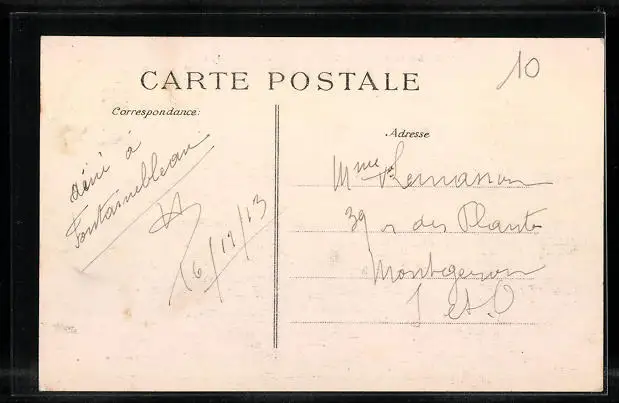 10
CARTE POSTALE
Correspondance:
Adresse
déné à
Fontainebleau
16/12/13
Mme Lemasson
39 r des Plantes
Montgeron
S et O